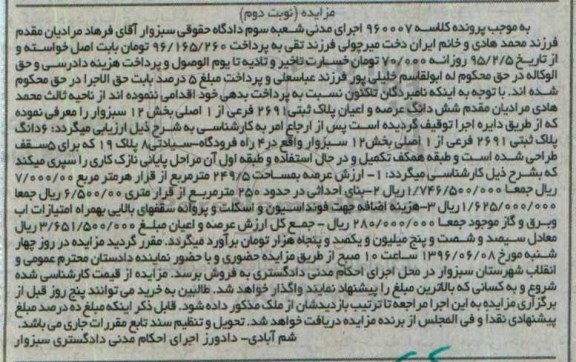 مزایده (نوبت دوم)
به موجب پرونده کلاسه 960007 اجرای مدنی شعبه سوم دادگاه حقوقی سبزوار آقای فرهاد مرادیان مقدم
فرزند محمد هادی و خانم ایران دخت میرچولی فرزند تقی به پرداخت 96/165/260 تومان بابت اصل خواسته و
از تاریخ 95/2/5 روزانه 70/000 تومان خسارت تاخیر و تادیه تا یوم الوصول و پرداخت هزینه دادرسی و حق
الوکاله در حق محکوم له ابوالقاسم خلیلی پور فرزند عباسعلی و پرداخت مبلغ 5 درصد بابت حق الاجرا در حق محکوم
شده اند. با توجه به اینکه نامبردگان تاکنون نسبت به پرداخت بدهی خود اقدامی ننموده اند از ناحیه ثالث محمد
هادی مرادیان مقدم شش دانگ عرصه و اعیان پلاک ثبتی 2691 فرعی از 1 اصلی بخش 12 سبزوار را معرفی نموده
که از طریق دایره اجرا توقیف گردیده است پس از ارجاع امر به کارشناسی به شرح ذیل ارزیابی میگردد: 6دانگ
پلاک ثبتی 2691 فرعی از 1 اصلی بخش 12 سبزوار واقع در 4 راه فرودگاه-سیادتی 8 پلاک 19 که برای 5سقف
طراحی شده است و طبقه همکف تکمیل و در حال استفاده و طبقه اول آن مراحل پایانی نازک کاری را سپری میکند
که بشرح ذیل کارشناسی میگردد: 1- ارزش عرصه بمساحت 249/5 مترمربع از قرار هرمتر مربع 7/000/00
ریال جمعا 1/746/500/000 ریال 2-بنای احداثی در حدود 250 مترمربع از قرار متری 6/500/00 ریال جمعا
1/625/000/000 ریال 3-هزینه اضافه جهت فونداسیون و اسکلت و پروانه سقفهای بالایی بهمراه امتیازات اب
وبرق و گاز موجود جمعا 280/000/000 ریال - جمع کل ارزش عرصه و اعیان مبلغ 3/651/500/000 ریال
معادل سیصد و شصت و پنج میلیون و یکصد و پنجاه هزار تومان برآورد میگردد. مقرر گردید مزایده در روز چهار
شنبه مورخ 1396/06/08 ساعت 10 صبح از طریق مزایده حضوری و با حضور نماینده دادستان محترم عمومی و
انقلاب شهرستان سبزوار در محل اجرای احکام مدنی دادگستری به فروش برسد. مزایده از قیمت کارشناسی شده
شروع و به کسانی که بالاترین مبلغ را پیشنهاد نمایند واگذار خواهد شد. طالبین به خرید می توانند پنج روز قبل از
برگزاری مزایده به این اجرا مراجعه تا ترتیب بازدیدشان از ملک مذکور داده شود. قابل ذکر اینکه مبلغ ده درصد مبلغ
پیشنهادی نقدا و فی المجلس از برنده مزایده دریافت خواهد شد. تحویل و تنظیم سند تابع مقررات جاری می باشد.
شم آبادی- دادورز اجرای احکام مدنی دادگستری سبزوار